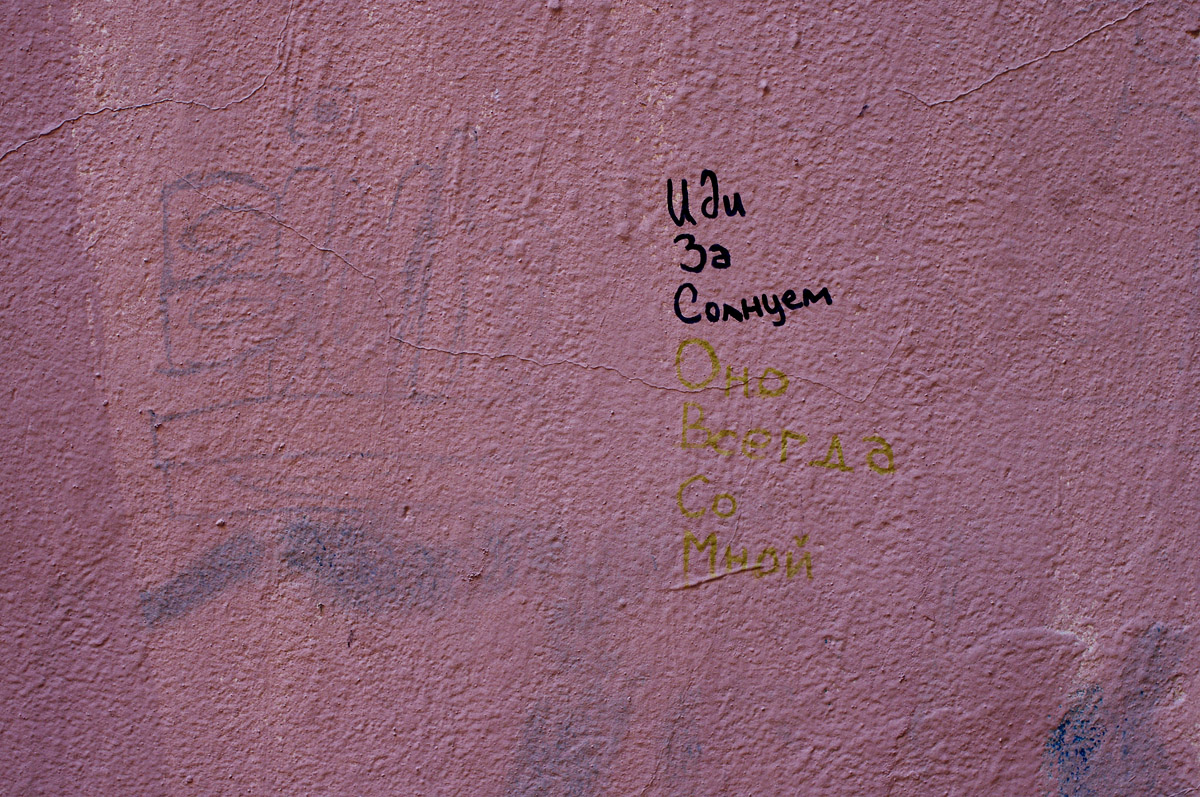 Иди
За
Солнцем
Оно
Всегда
Со
Мной